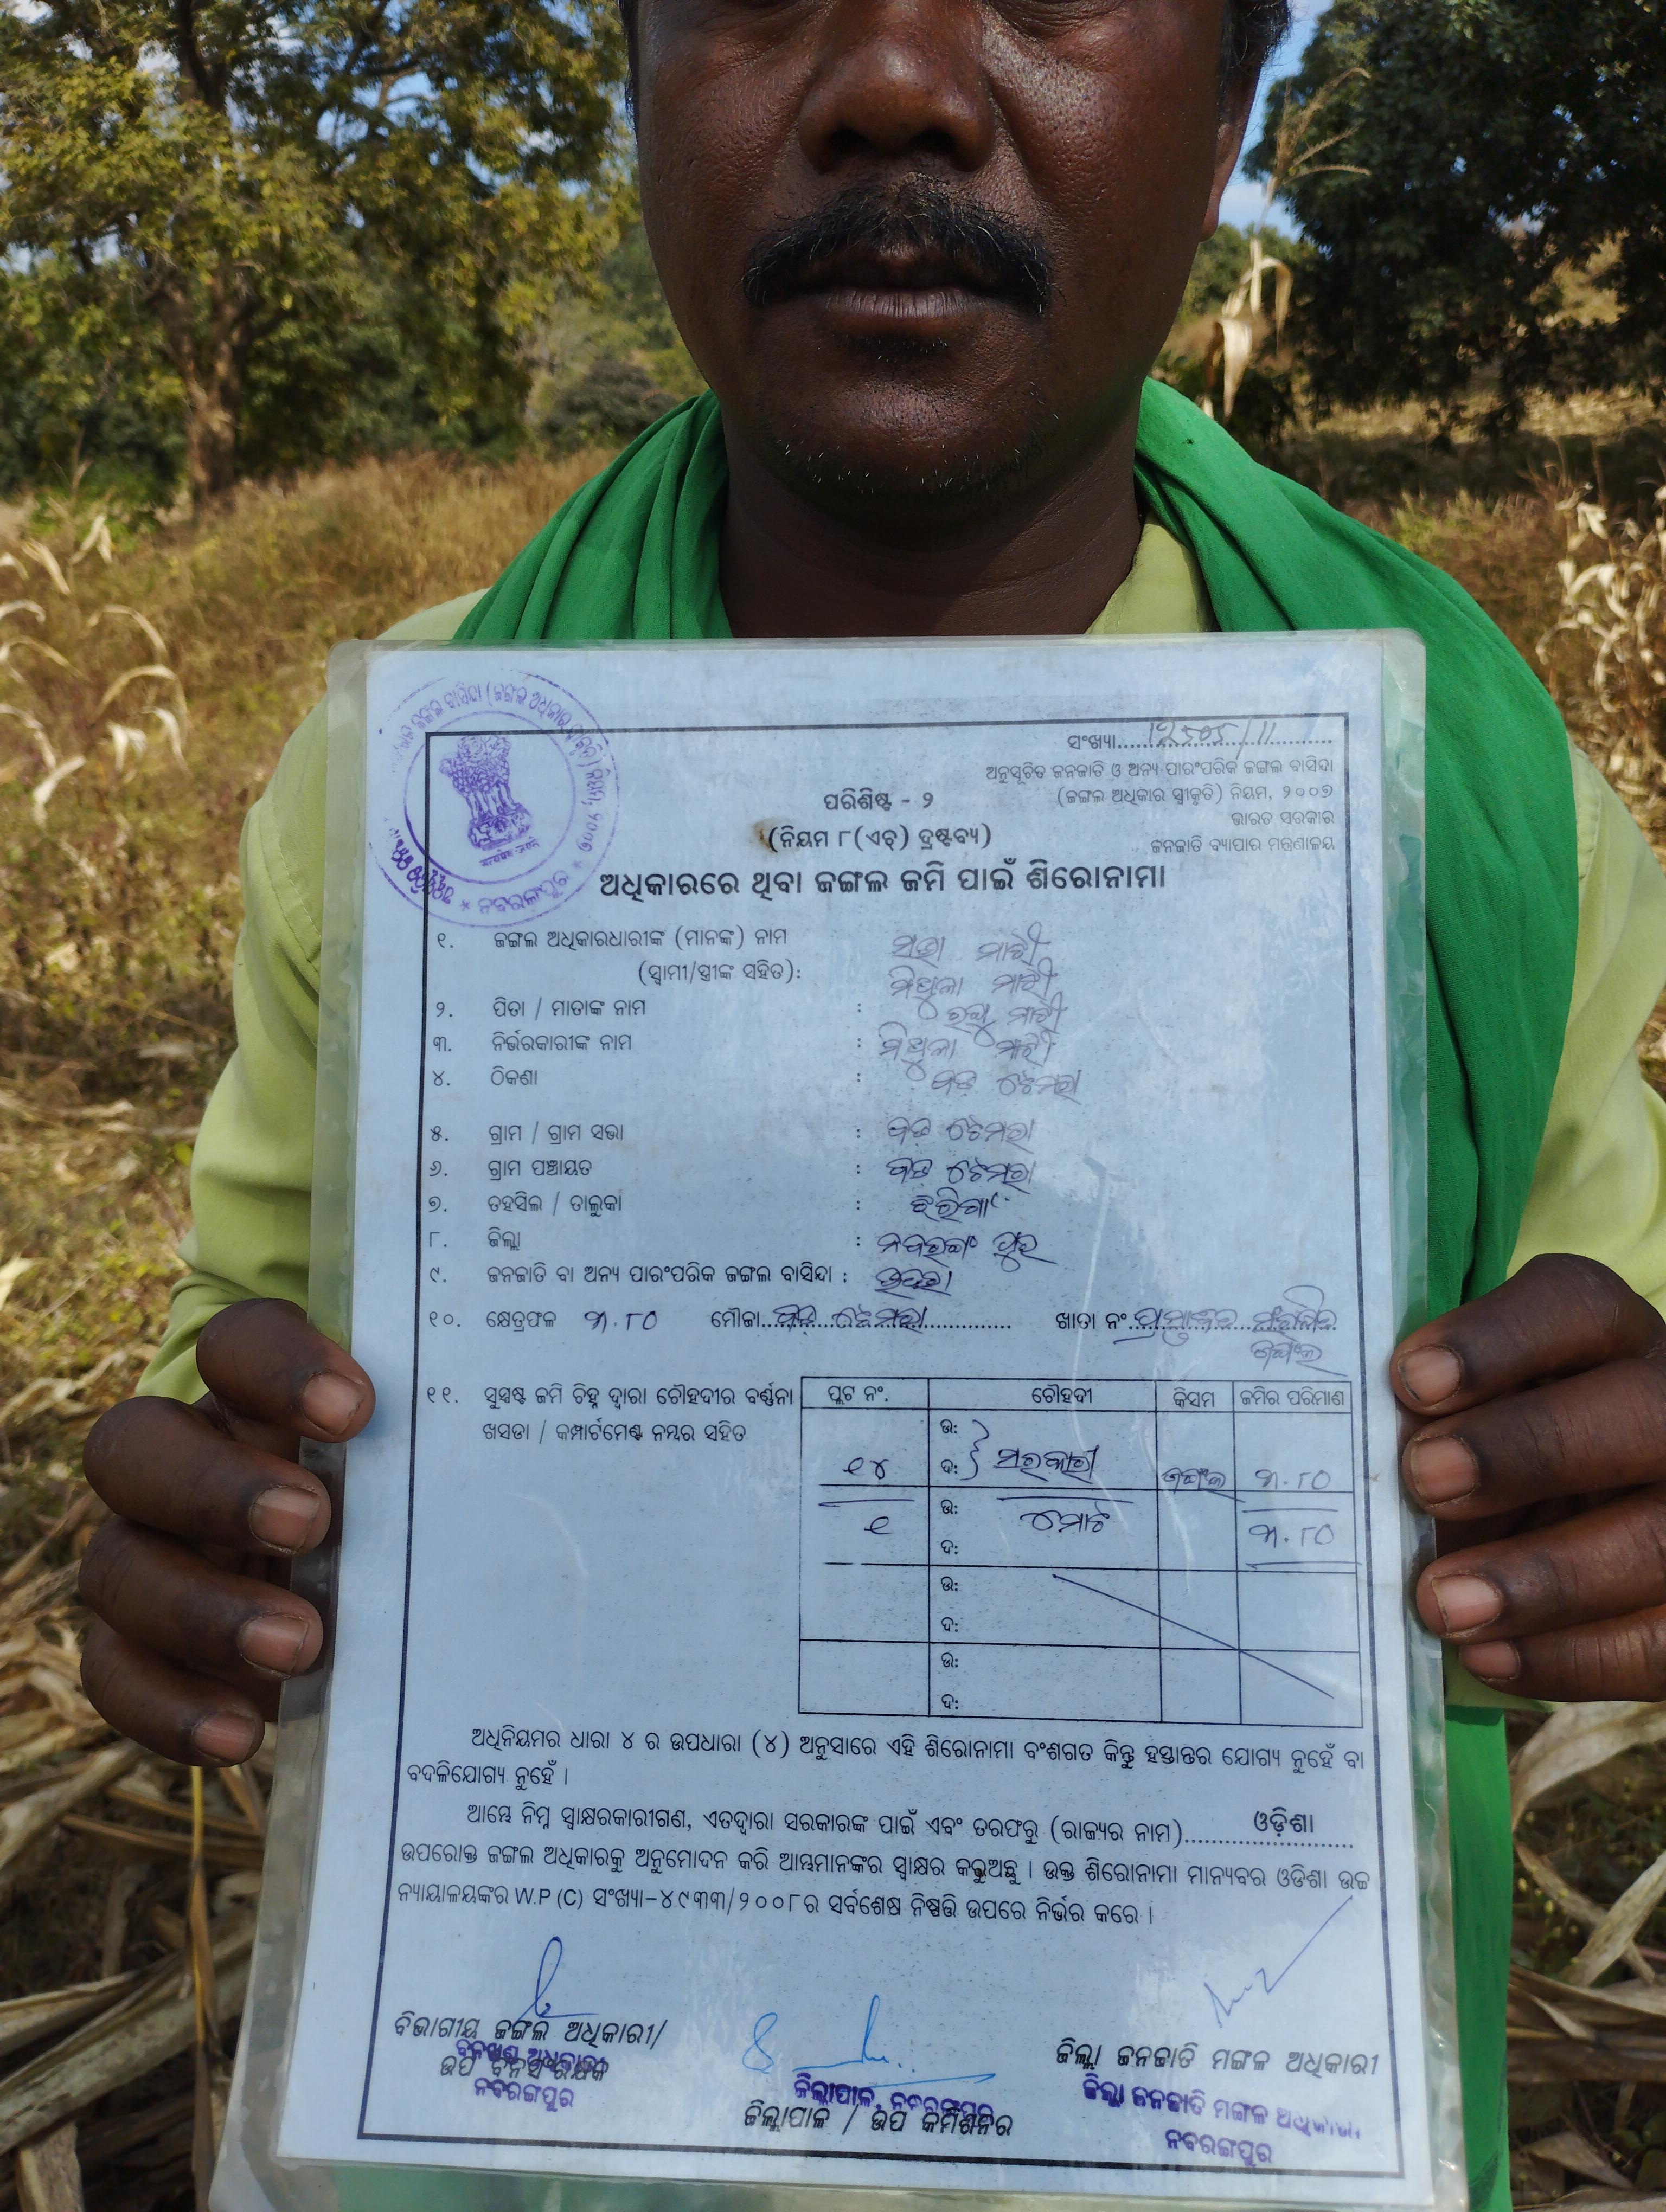 ସଂଖ୍ୟା
ଅନୁସୂଚିତ ଜନଜାତି ଓ ଅନ୍ୟ ପାରଂପରିକ ଜଙ୍ଗଲ ବାସିନ୍ଦା
(ଜଙ୍ଗଲ ଅଧିକାର ସ୍ୱୀକୃତି) ନିୟମ, ୨୦୦୭
ଭାରତ ସରକାର
ଜନଜାତି ବ୍ୟାପାର ମନ୍ତ୍ରଣାଳୟ
ପରିଶିଷ୍ଟ - ୨
(ନିୟମ ୮(ଏଚ୍) ଦ୍ରଷ୍ଟବ୍ୟ)
ଅଧିକାରରେ ଥିବା ଜଙ୍ଗଲ ଜମି ପାଇଁ ଶିରୋନାମା
୧. ଜଙ୍ଗଲ ଅଧିକାରଧାରୀଙ୍କ (ମାନଙ୍କ) ନାମ ମାଝୀ
(ସ୍ୱାମୀ/ସ୍ତ୍ରୀଙ୍କ ସହିତ): ମିଥୁଳା ମାଝୀ
୨. ପିତା / ମାତାଙ୍କ ନାମ : ମାଝୀ
୩. ନିର୍ଭରକାରୀଙ୍କ ନାମ : ମିଥୁଳା ମାଝୀ
୪. ଠିକଣା : ବଡ଼ ଟେମରା
୫. ଗ୍ରାମ / ଗ୍ରାମ ସଭା : ବଡ଼ ଟେମରା
୬. ଗ୍ରାମ ପଞ୍ଚାୟତ : ବଡ଼ ଟେମରା
୭. ତହସିଲ / ତାଲୁକା : ଝରିଗାଁ
୮. ଜିଲ୍ଲା : ନବରଙ୍ଗ ପୁର
୯. ଜନଜାତି ବା ଅନ୍ୟ ପାରଂପରିକ ଜଙ୍ଗଲ ବାସିନ୍ଦା :
୧୦. କ୍ଷେତ୍ରଫଳ ୩.୮୦ ମୌଜା ବଡ଼ ଟେମରା ଖାତା ନଂ
ଜଙ୍ଗଲ
୧୧. ସୁସ୍ପଷ୍ଟ ଜମି ଚିହ୍ନ ଦ୍ୱାରା ଚୌହଦୀର ବର୍ଣ୍ଣନା
ଖସଡା / କମ୍ପାର୍ଟମେଣ୍ଟ ନମ୍ବର ସହିତ
ପ୍ଲଟ ନଂ. ଚୌହଦୀ କିସମ ଜମିର ପରିମାଣ
ଉ:
୧୪ ଦ: ସରକାରୀ ଜଙ୍ଗଲ ୩.୮୦
ଉ: ମୋଟ
୧ ୩.୮୦
ଦ:
ଉ:
ଦ:
ଉ:
ଦ:
ଅଧିନିୟମର ଧାରା ୪ ର ଉପଧାରା (୪) ଅନୁସାରେ ଏହି ଶିରୋନାମା ବଂଶଗତ କିନ୍ତୁ ହସ୍ତାନ୍ତର ଯୋଗ୍ୟ ନୁହେଁ ବା
ବଦଳିଯୋଗ୍ୟ ନୁହେଁ ।
ଆମ୍ଭେ ନିମ୍ନ ସ୍ୱାକ୍ଷରକାରୀଗଣ, ଏତଦ୍ଦ୍ୱାରା ସରକାରଙ୍କ ପାଇଁ ଏବଂ ତରଫରୁ (ରାଜ୍ୟର ନାମ) ଓଡ଼ିଶା
ଉପରୋକ୍ତ ଜଙ୍ଗଲ ଅଧିକାରକୁ ଅନୁମୋଦନ କରି ଆମ୍ଭମାନଙ୍କର ସ୍ୱାକ୍ଷର କରୁଅଛୁ । ଉକ୍ତ ଶିରୋନାମା ମାନ୍ୟବର ଓଡିଶା ଉଚ୍ଚ
ନ୍ୟାୟାଳୟଙ୍କର W.P (C) ସଂଖ୍ୟା–୪୯୩୩/୨୦୦୮ର ସର୍ବଶେଷ ନିଷ୍ପତ୍ତି ଉପରେ ନିର୍ଭର କରେ ।
ବିଭାଗୀୟ ଜଙ୍ଗଲ ଅଧିକାରୀ/
ବନଖଣ୍ଡ ଅଧିକାରୀ
ଉପ ବନସଂରକ୍ଷକ
ନବରଙ୍ଗପୁର
ଜିଲ୍ଲାପାଳ, ନବରଙ୍ଗପୁର
ଜିଲ୍ଲାପାଳ / ଉପ କମିଶନର
ଜିଲ୍ଲା ଜନଜାତି ମଙ୍ଗଳ ଅଧିକାରୀ
ଜିଲ୍ଲା ଜନଜାତି ମଙ୍ଗଳ ଅଧିକାରୀ
ନବରଙ୍ଗପୁର